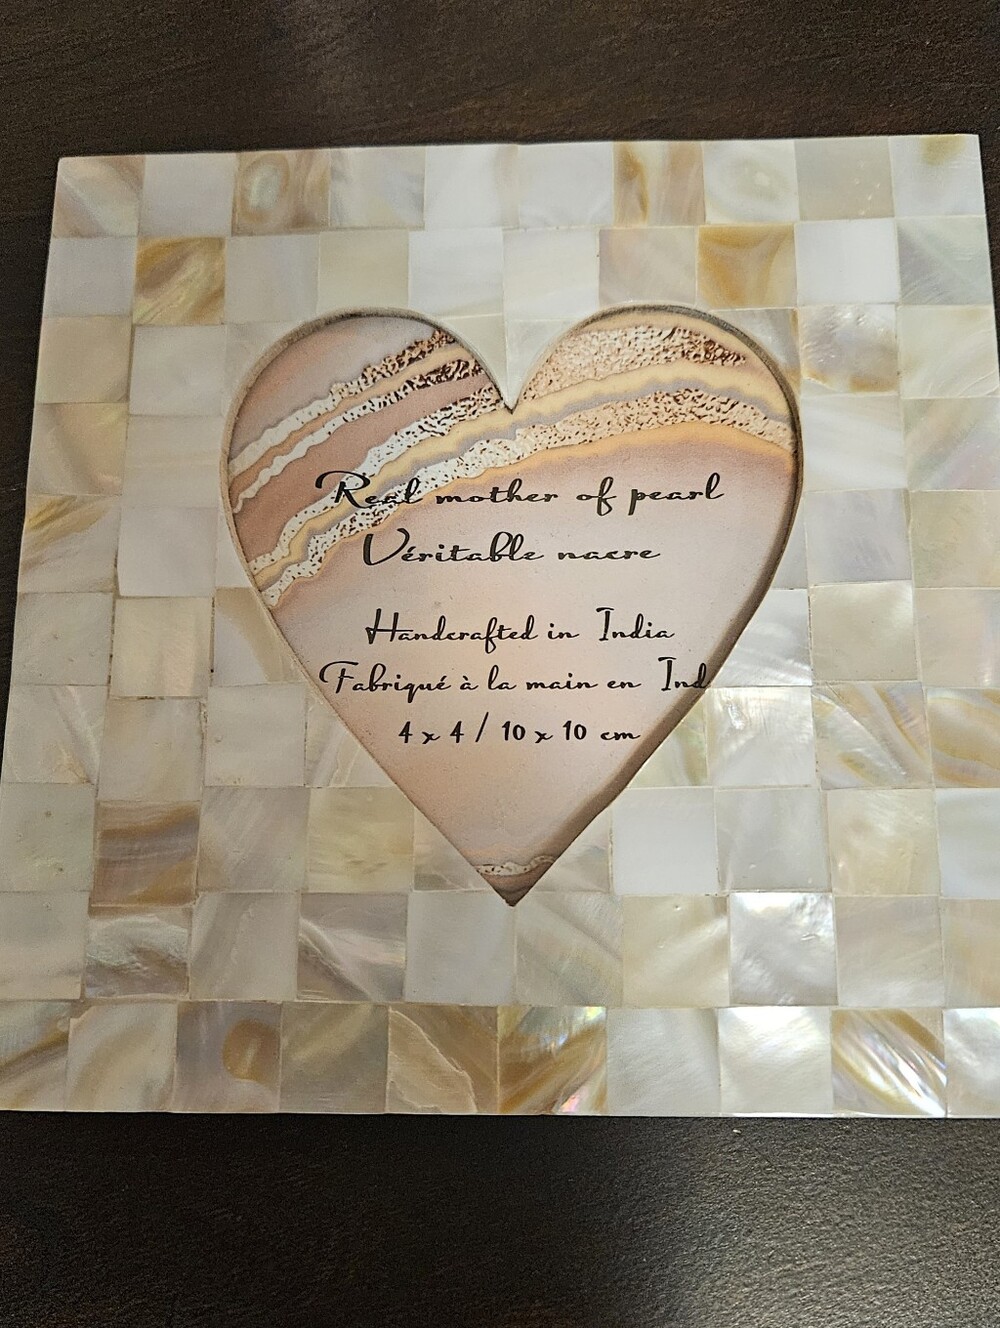 Real mother of pearl
Véritable nacre
Handcrafted in India
Fabriqué à la main en Ind
4 x 4 / 10 x 10 cm